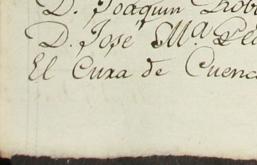 D. Joaquin Rob
D. José Mª.
El Cura de Cuenc